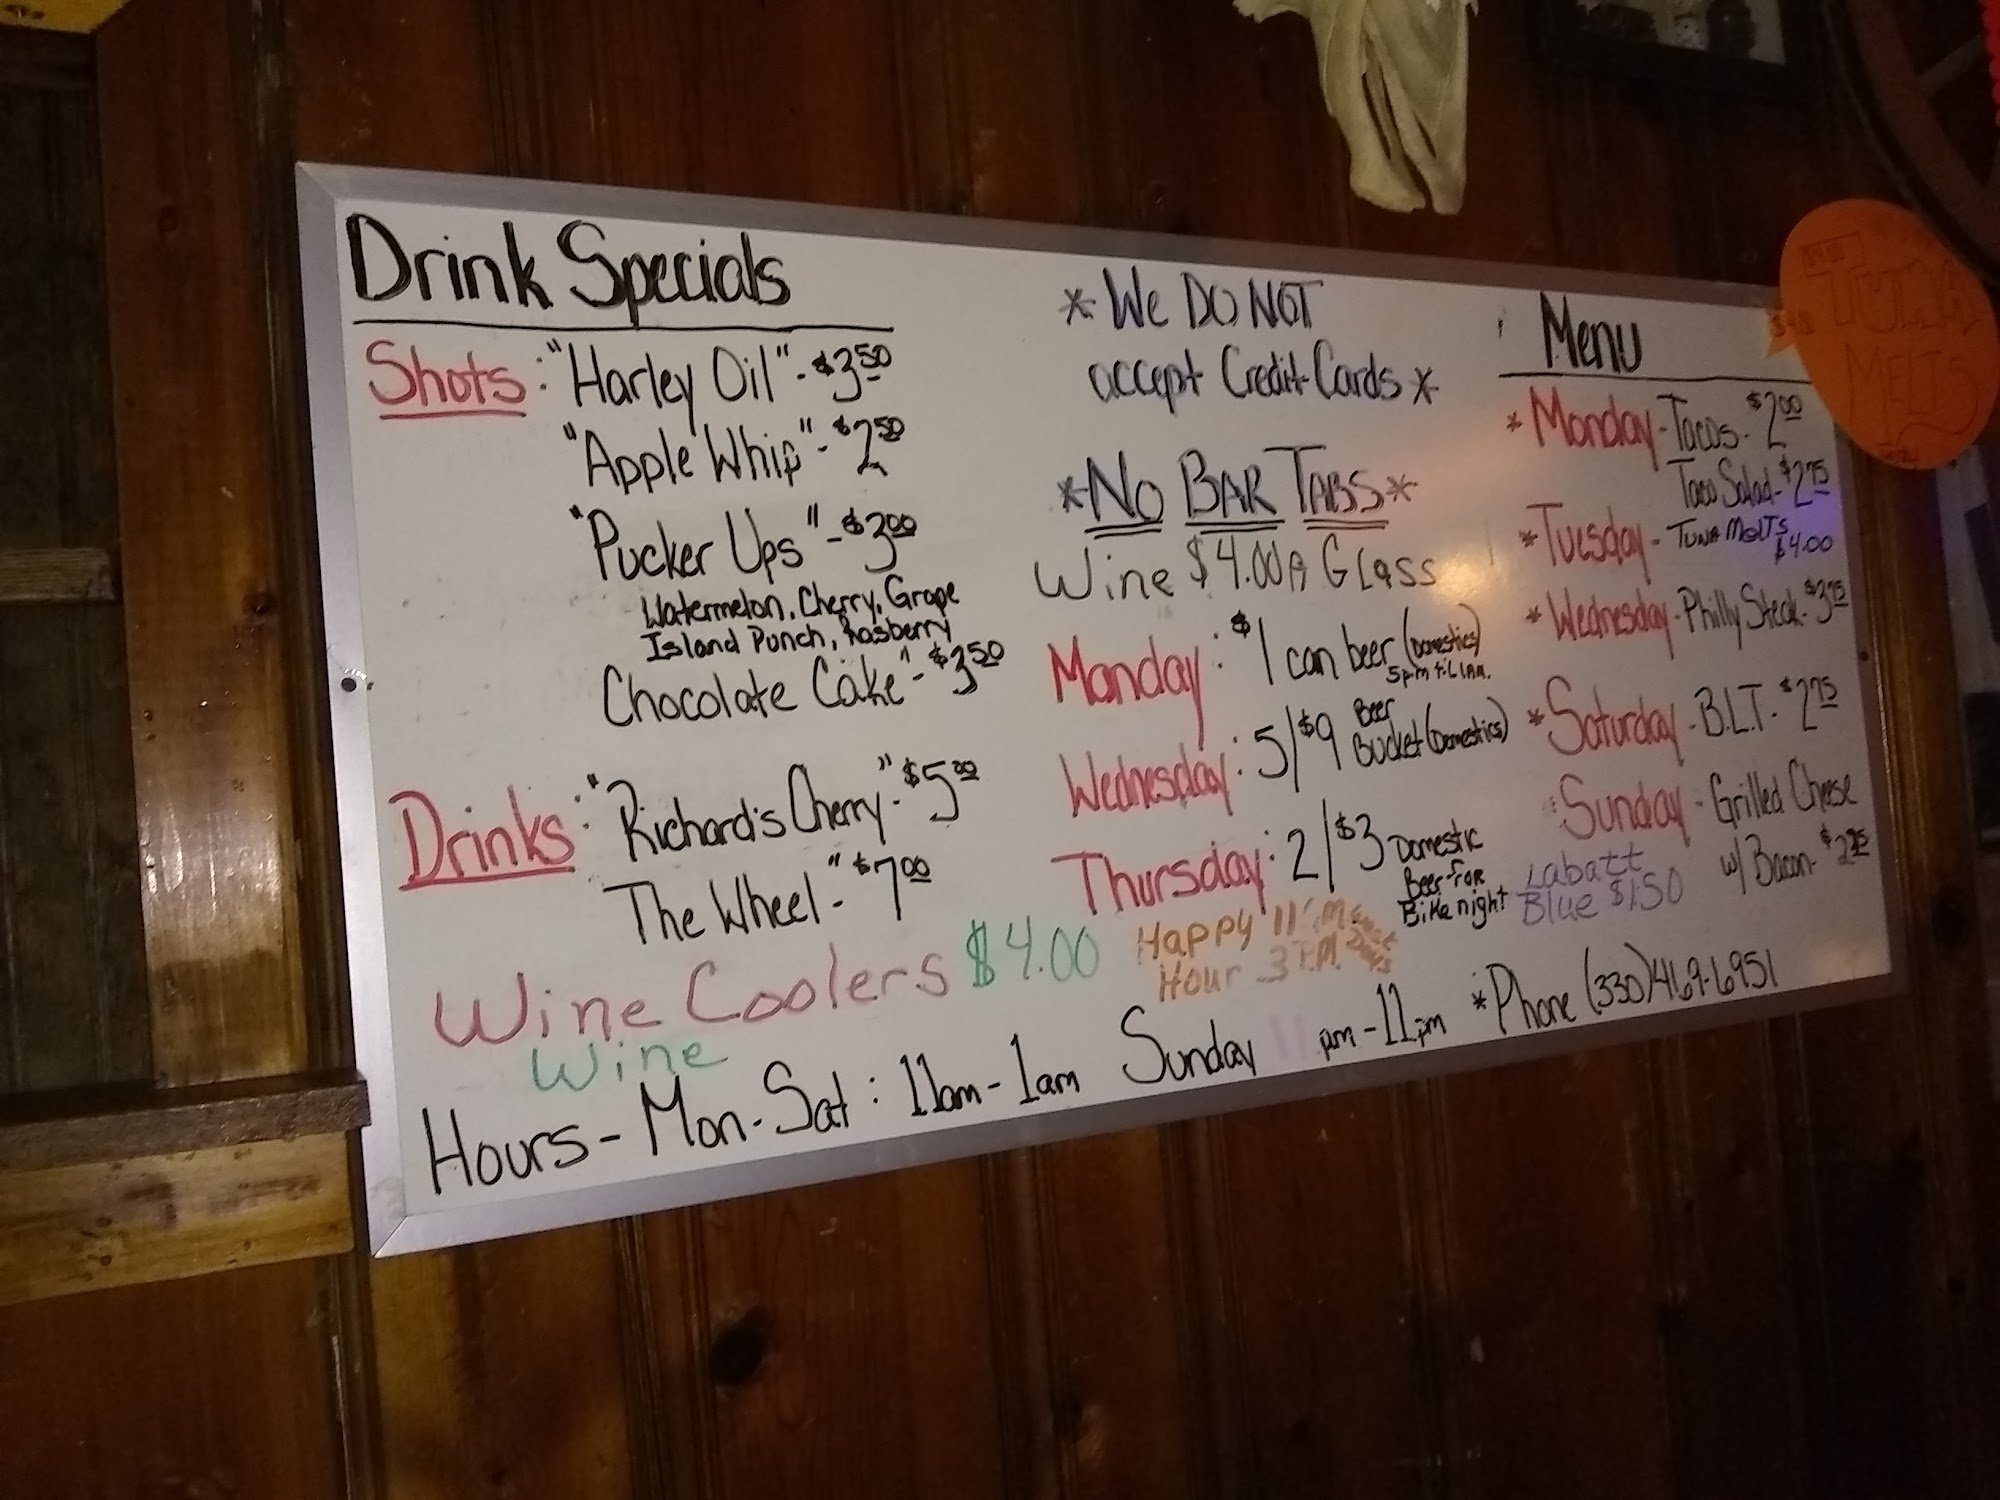 Drink Specials
Shots: "Harley Oil" - $3.50
"Apple Whip" - $2.50
"Pucker Ups" - $3.00
Watermelon, Cherry, Grape
Island Punch, Rasberry
Chocolate Cake" - $3.50
Drinks: "Richard's Cherry" - $5.00
The Wheel" - $7.00
Wine Coolers $4.00
Wine
* We DO NOT
accept Credit Cards *
*No BAR TABS*
Wine $4.00 A GLass
Monday: $1 can beer (Domestics)
5pm til 1AM.
Wednesday: 5/$9 Beer
Bucket (Domestics)
Thursday: 2/$3 Domestic
Beer for
Bike night
Happy
Hour 3 P.M.
Menu
* Monday - Tacos - $2.00
Taco Salad - $2.75
* Tuesday - TUNA MELTS
$4.00
* Wednesday - Philly Steak - $3.75
* Saturday - B.L.T. - $2.75
Sunday - Grilled Cheese
w/ Bacon -
Labatt
Blue $1.50
Hours - Mon - Sat: 11am - 1am Sunday pm - 11pm *Phone (330)469-6951
TUNA
MELTS